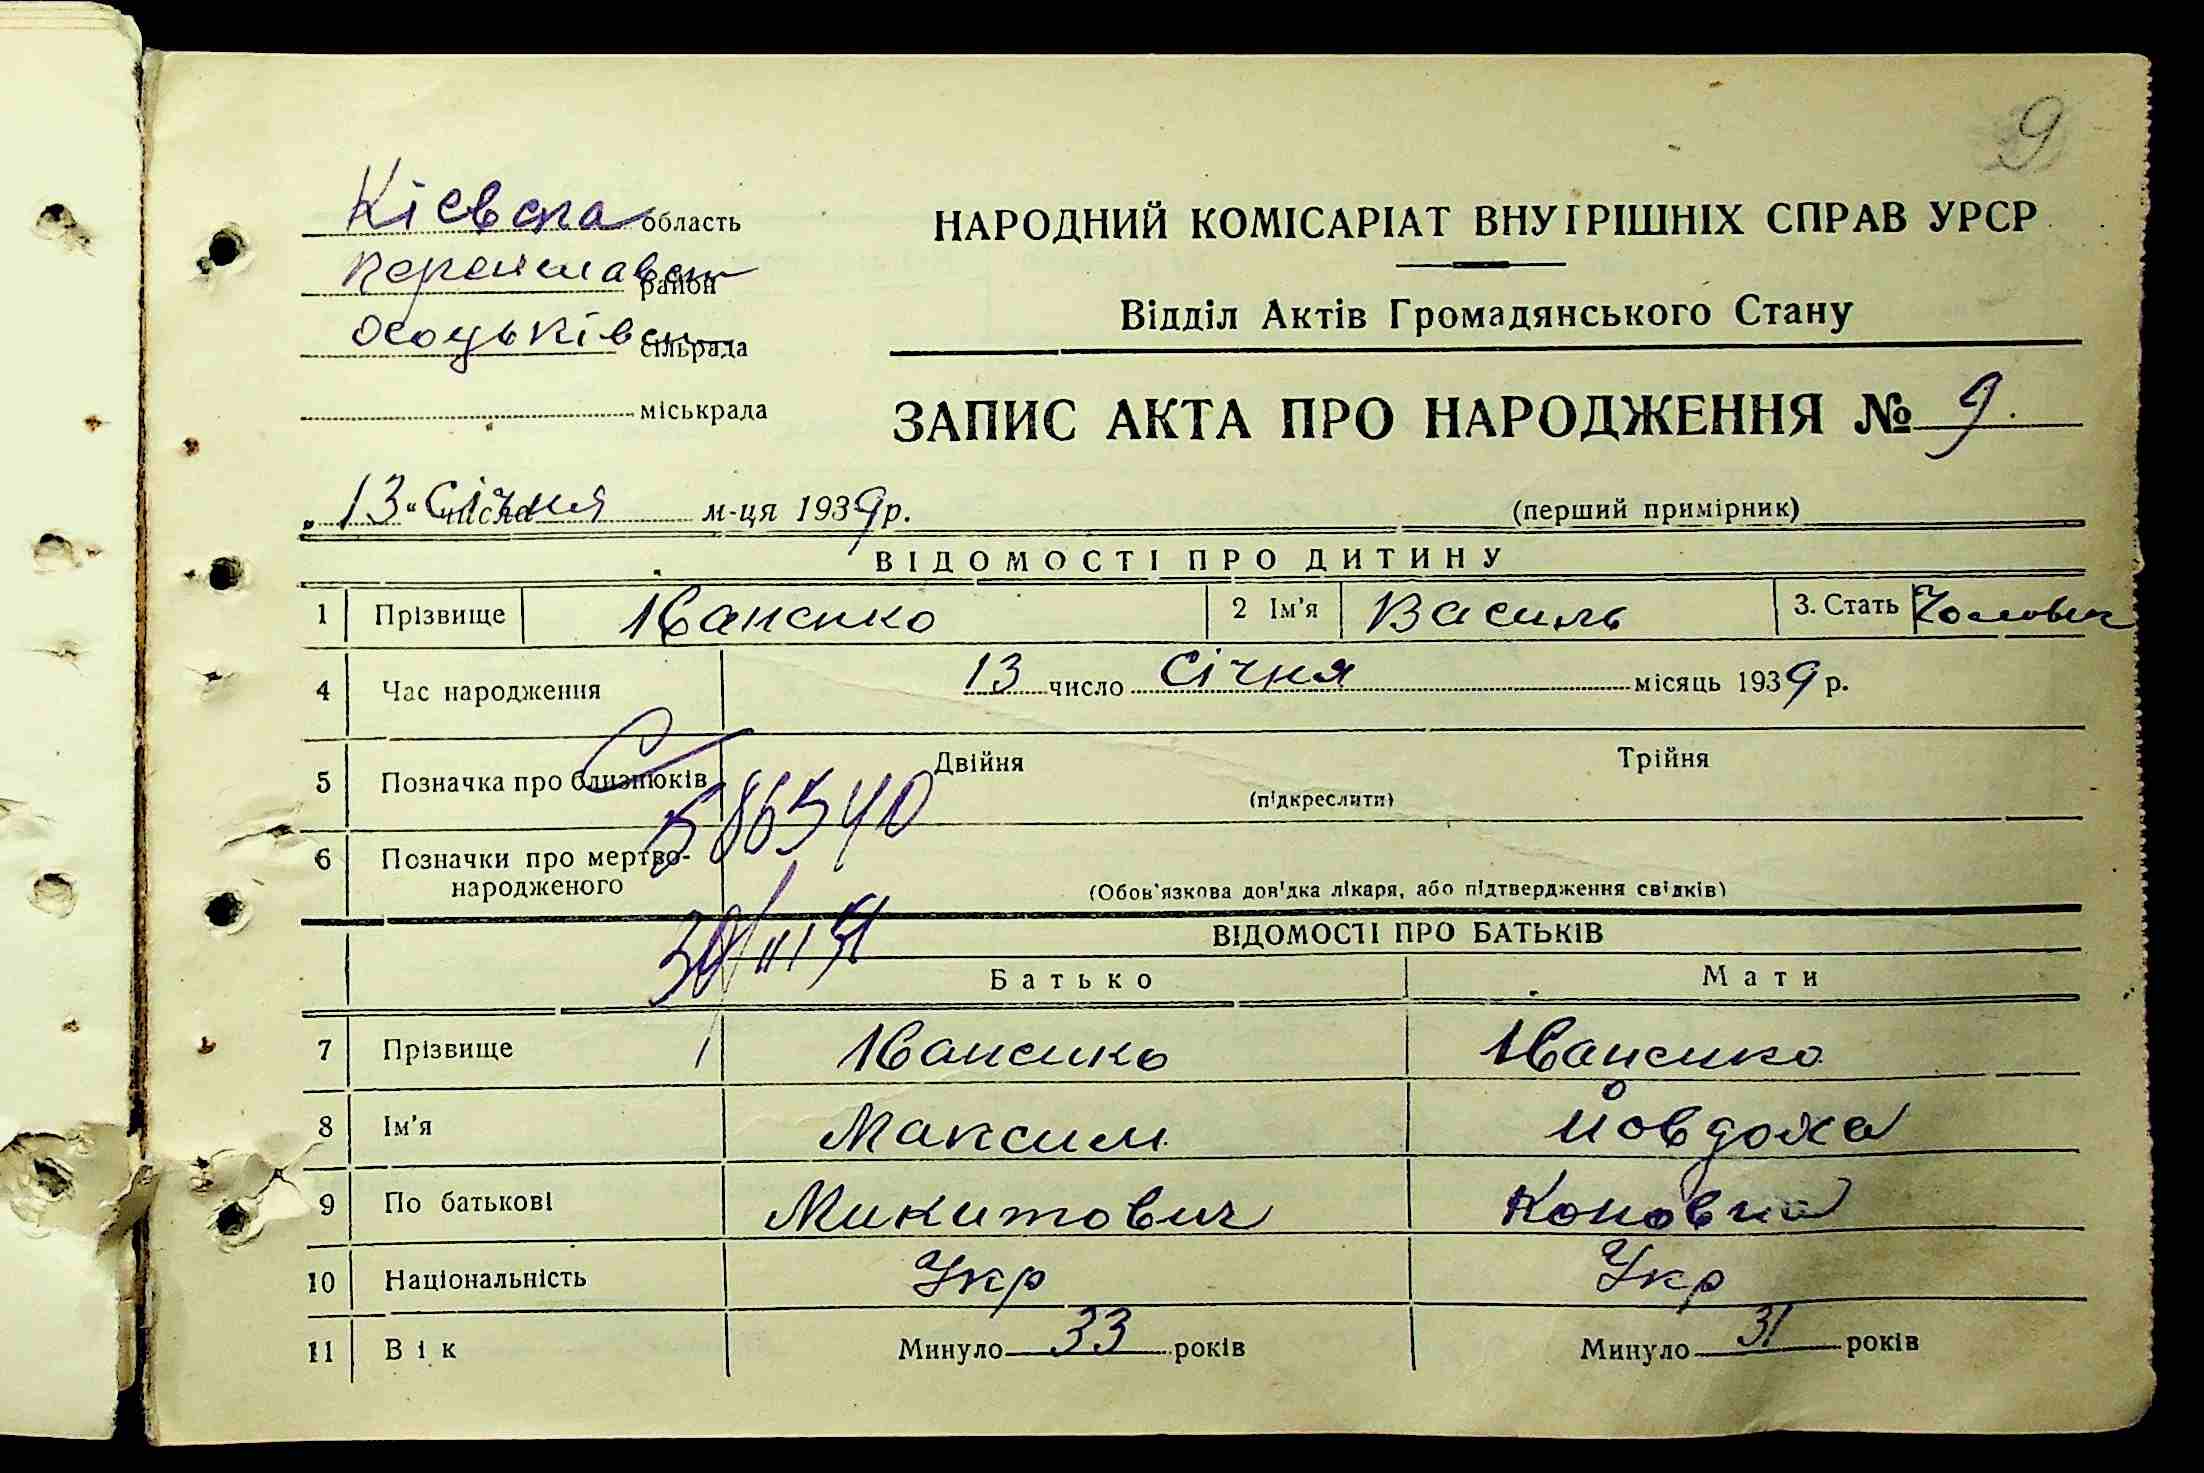 9
Кіевска область
НАРОДНИЙ КОМІСАРІАТ ВНУТРІШНІХ СПРАВ УРСР
район
Відділ Актів Громадянського Стану
сільрада
міськрада
ЗАПИС АКТА ПРО НАРОДЖЕННЯ № 9.
„13“ числа Січня м-ця 1939 р.
(перший примірник)
ВІДОМОСТІ ПРО ДИТИНУ
1 Прізвище Іваненко 2 Ім'я Василь 3. Стать Чоловіч
4 Час народження 13 число Січня місяць 1939 р.
5 Позначка про близнюків Двійня Трійня
(підкреслити)
586540
6 Позначки про мертво-
народженого
(Обов'язкова довідка лікаря, або підтвердження свідків)
ВІДОМОСТІ ПРО БАТЬКІВ
Батько Мати
7 Прізвище Іваненко Іваненко
8 Ім'я Максим Йовдоха
9 По батькові Микитович Кононовна
10 Національність Укр Укр
11 Вік Минуло 33 років Минуло 31 років